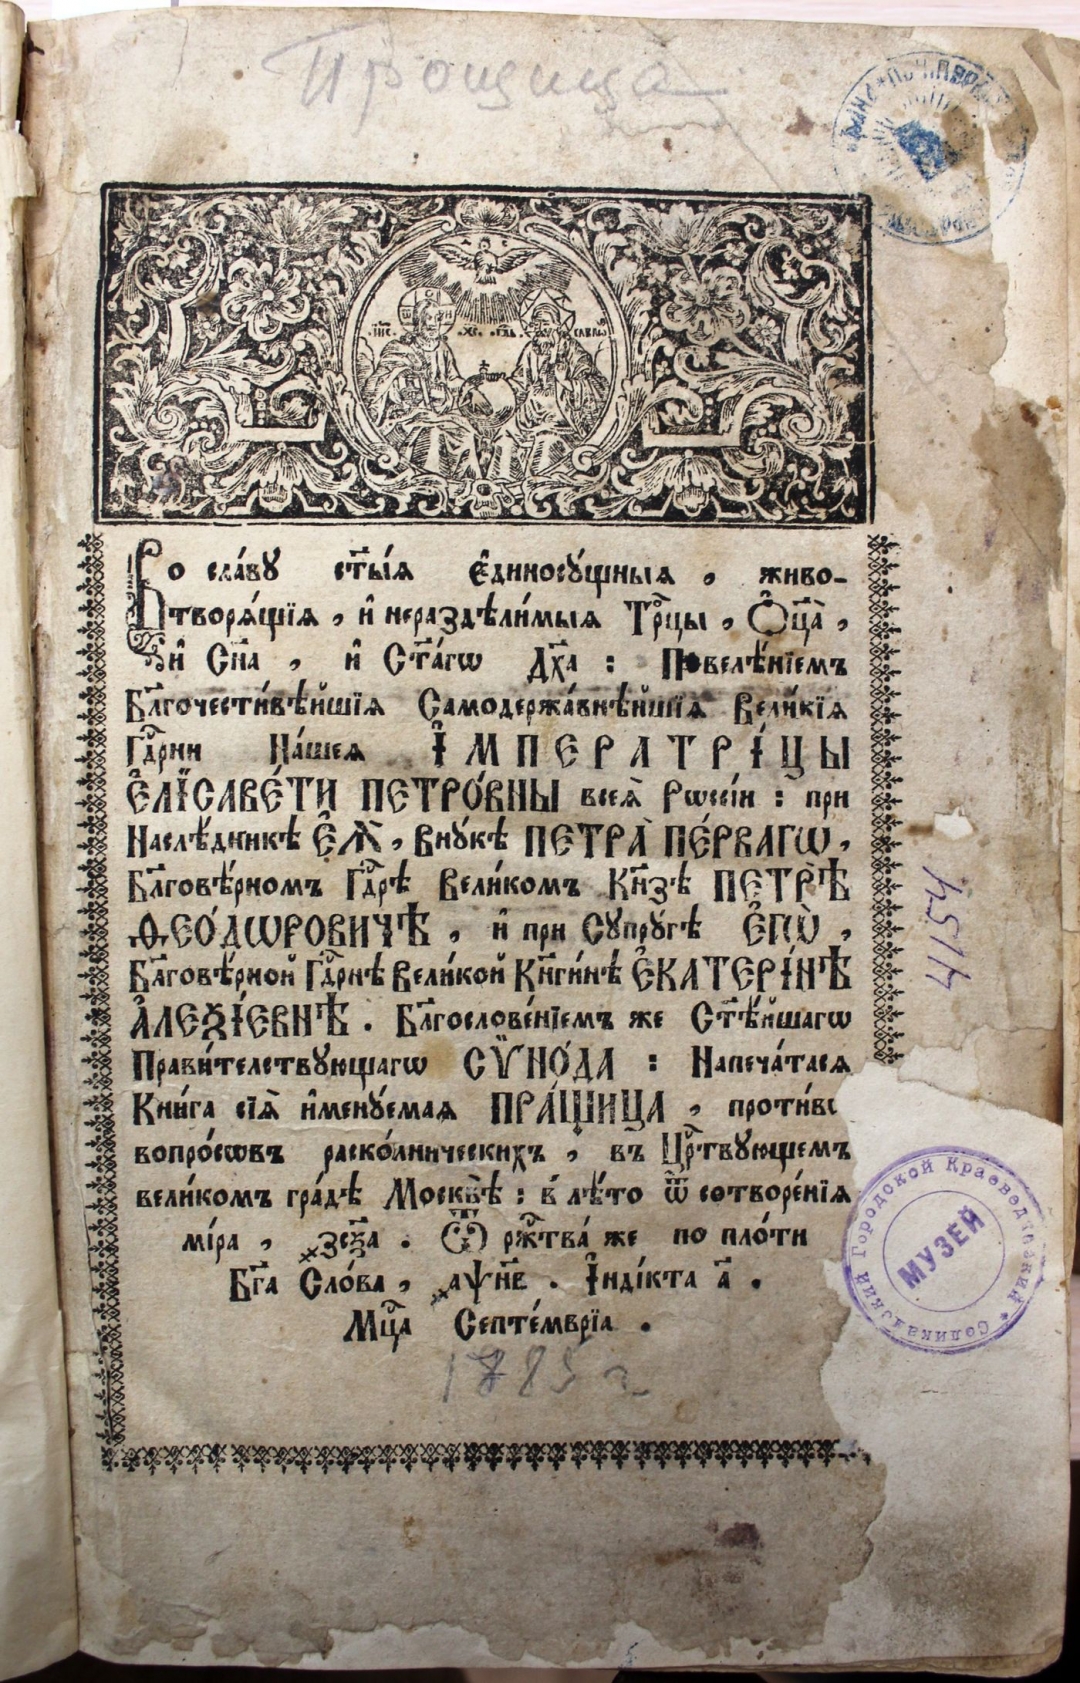 Прощица
І҃ИС. ХС. ГДЬ. САВАѠ
Во сла́вꙋ ст҃ы́ѧ є҆диносꙋ́щныѧ , живо-
творѧ́щїѧ , и҆ нераздѣли́мыѧ Трⷪ҇цы , Ѻ҆ц҃а̀ ,
и҆ Сн҃а , и҆ Ст҃а́гѡ Дх҃а : Повелѣ́нїемъ
Бл҃гочести́вѣйшїѧ Самодержа́внѣйшїѧ Вели́кїѧ
Гдⷭ҇рни На́шеѧ І҆МПЕРАТРІ́ЦЫ
Є҆ЛІСАВЕ́ТИ ПЕТРО́ВНЫ всеѧ̀ Рѡссі́и : при
Наслѣ́дникѣ Є҆Ѧ̀ , Внꙋ́кѣ ПЕТРА̀ ПЕ́РВАГѠ ,
Бл҃гове́рномъ Гдⷭ҇рѣ Вели́комъ Кн҃зѣ ПЕТРѢ̀
ѲЕО́ДѠРОВИЧѢ , и҆ при Сꙋпрꙋ́гѣ Є҆ГѠ̀ ,
Бл҃гове́рной Гдⷭ҇рнѣ Вели́кой Кн҃ги́нѣ Є҆КАТЕРІ́НѢ
А҆ЛЕѮІ́ЕВНѢ . Бл҃гослове́нїемъ же Ст҃ѣ́йшагѡ
Прави́телствꙋющагѡ СѴНО́ДА : Напеча́тасѧ
Кни́га сїѧ̀ и҆менꙋ́емаѧ ПРА́ЩИЦА , проти́вꙋ
вопро́сѡвъ раско́лническихъ , въ Црⷭ҇твꙋющемъ
вели́комъ гра́дѣ Москвѣ̀ : в лѣ́то ѿ сотворе́нїѧ
мі́ра , ҂зс҃ѯа . Ѿ рж҃тва́ же по пло́ти
Бг҃а Сло́ва , ҂аѱн҃в . І҆ндікта а҃ .
Мц҃а Септе́мврїа .
Соликамский Городской Краеведческий
МУЗЕЙ